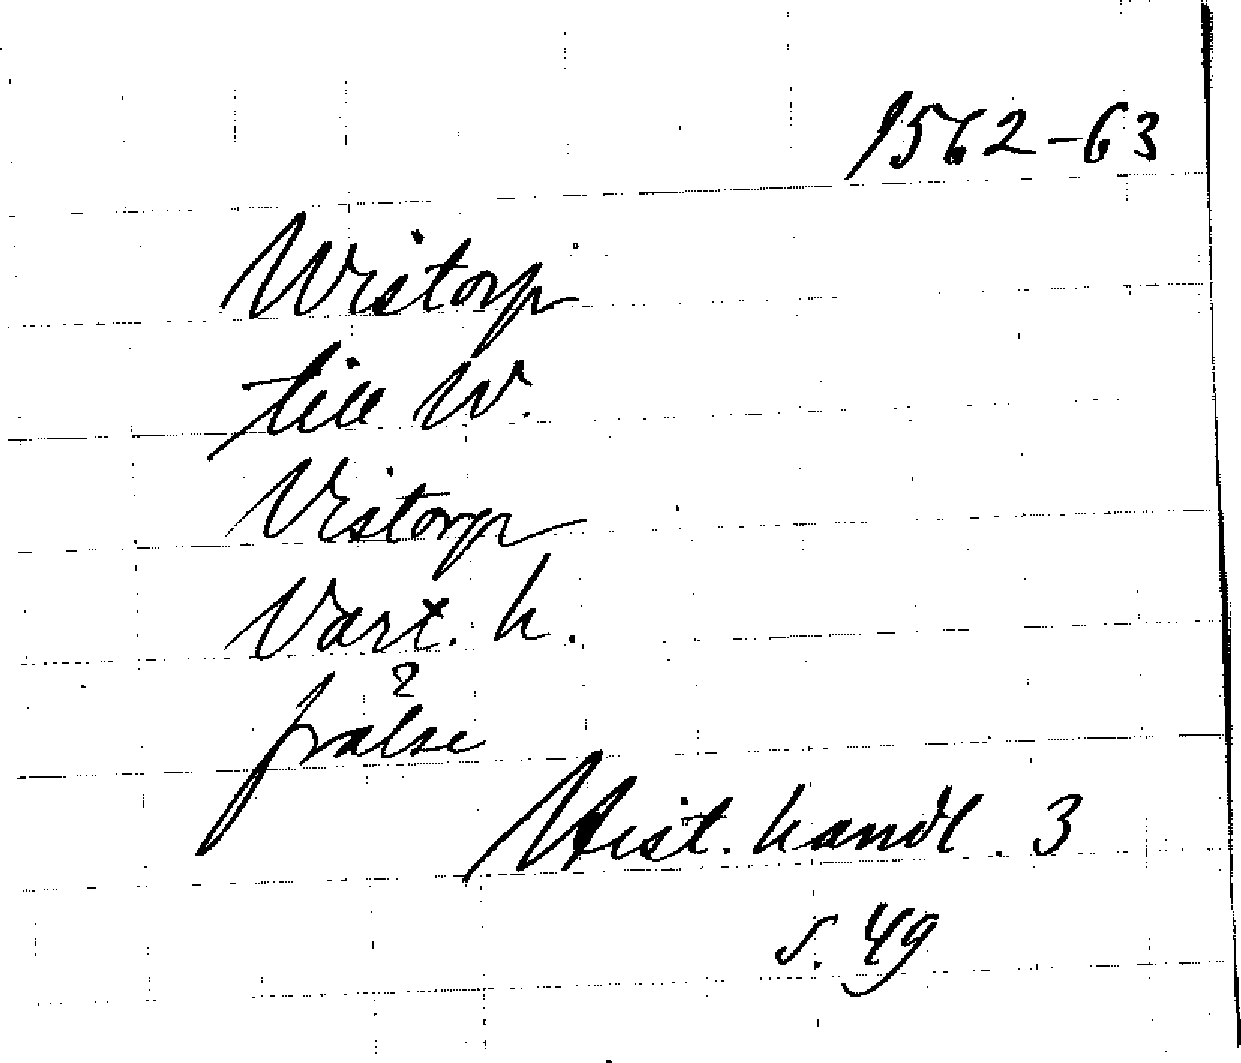 1562-63
Wistorp
till W.
Vistorp
Vart. h.
?
frälse
Hist. handl. 3
s. 49